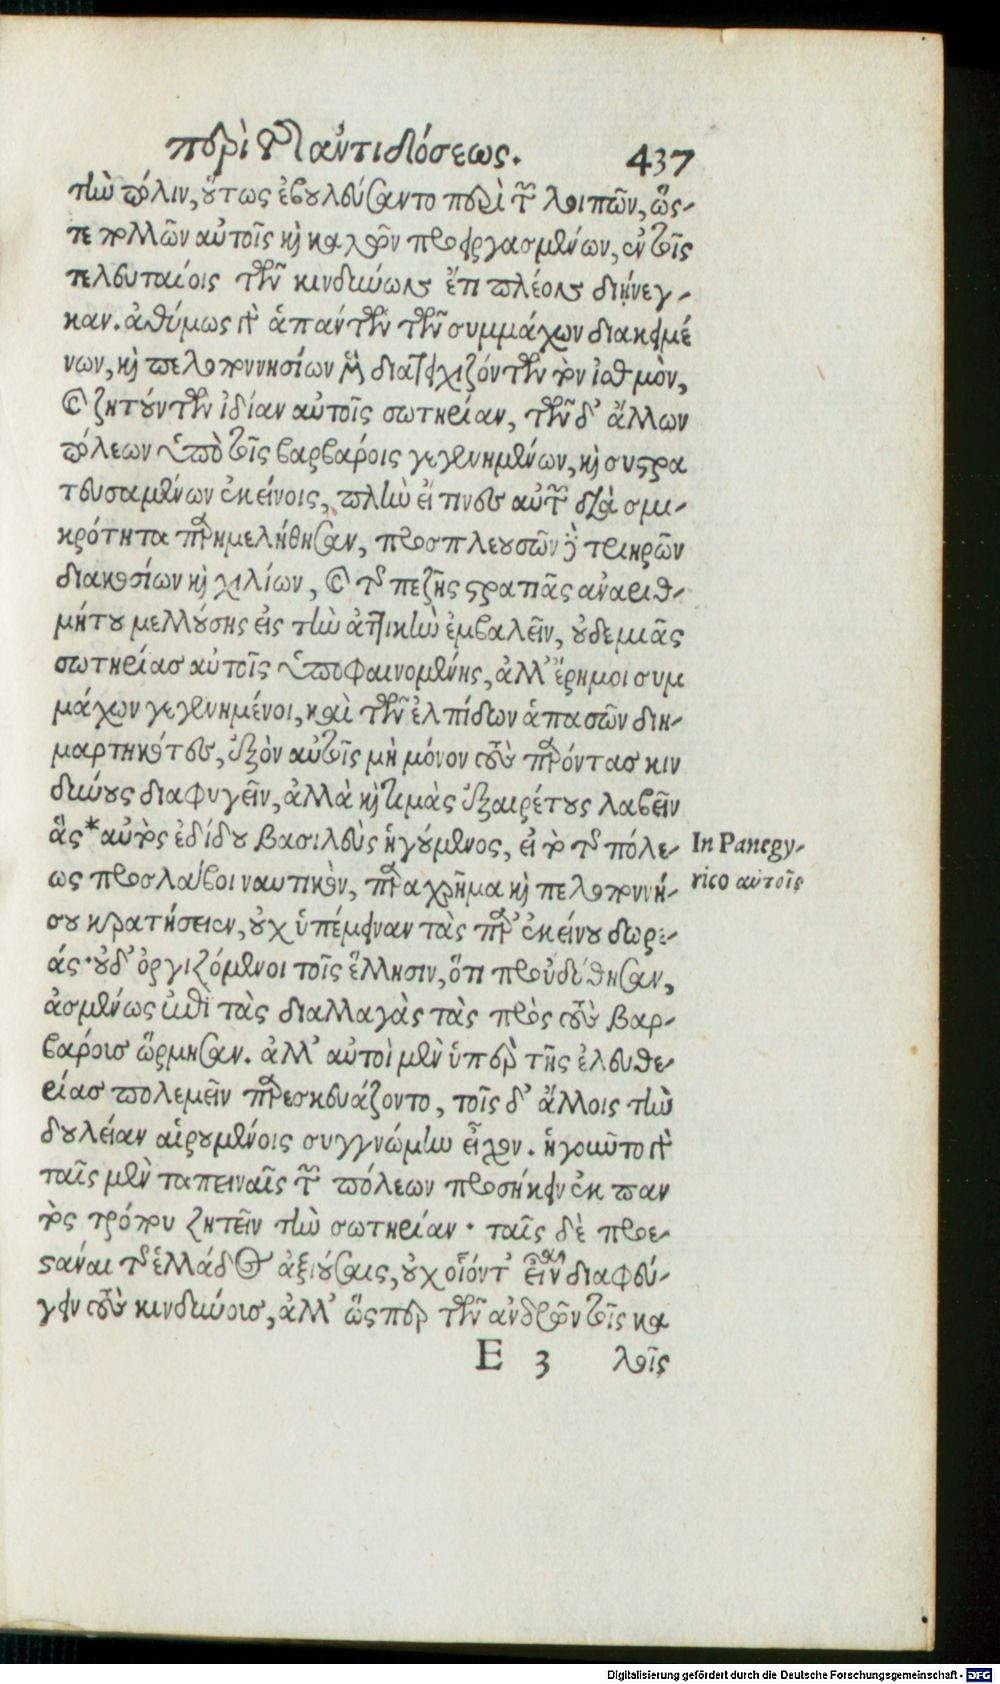 περὶ τῆς ἀντιδόσεως. 437
τὴν πόλιν, οὕτως ἐβουλεύσαντο περὶ τῶν λοιπῶν, ὥς-
τε πολλῶν αὐτοῖς καὶ καλῶν προειργασμένων, ἐν τοῖς
τελευταίοις τῶν κινδύνων ἔτι πλέον διήνεγ-
καν. ἀθύμως γὰρ ἁπάντων τῶν συμμάχων διακειμέ
νων, καὶ πελοποννησίων μὲν διατειχιζόντων τὸν ἰσθμὸν,
καὶ ζητούντων ἰδίαν αὐτοῖς σωτηρίαν, τῶν δ' ἄλλων
πόλεων ὑπὸ τοῖς βαρβάροις γεγενημένων, καὶ συστρα
τευσαμένων ἐκείνοις, πλὴν εἴ τινες αὐτῶν διὰ σμι-
κρότητα παρημελήθησαν, προσπλευσῶν δὲ τριηρῶν
διακοσίων καὶ χιλίων, καὶ τῆς πεζῆς στρατιᾶς ἀναριθ-
μήτου μελλούσης εἰς τὴν ἀττικὴν ἐμβαλεῖν, οὐδεμιᾶς
σωτηρίας αὐτοῖς ὑποφαινομένης, ἀλλ' ἔρημοι συμ
μάχων γεγενημένοι, καὶ τῶν ἐλπίδων ἁπασῶν διη-
μαρτηκότες, ἐξὸν αὐτοῖς μὴ μόνον τοὺς παρόντας κιν
δύνους διαφυγεῖν, ἀλλὰ καὶ τιμὰς ἐξαιρέτους λαβεῖν
ἃς* αὐτὸς ἐδίδου βασιλεὺς ἡγούμενος, εἰ τὸ τῆς πόλε-
In Panegy-
ως προσλάβοι ναυτικὸν, παραχρῆμα καὶ πελοποννή-
rico αὐτοῖς
σου κρατήσειεν, οὐχ ὑπέμειναν τὰς παρ' ἐκείνου δωρε-
άς· οὐδ' ὀργιζόμενοι τοῖς ἕλλησιν, ὅτι προὐδόθησαν,
ἀσμένως ἐπὶ τὰς διαλλαγὰς τὰς πρὸς τοὺς βαρ-
βάρους ὥρμησαν. ἀλλ' αὐτοὶ μὲν ὑπὲρ τῆς ἐλευθε-
ρίας πολεμεῖν παρεσκευάζοντο, τοῖς δ' ἄλλοις τὴν
δουλείαν αἱρουμένοις συγγνώμην εἶχον. ἡγοῦντο γὰρ
ταῖς μὲν ταπειναῖς τῶν πόλεων προσήκειν ἐκ παν
τὸς τρόπου ζητεῖν τὴν σωτηρίαν· ταῖς δὲ προε-
στάναι τῆς ἑλλάδος ἀξιούσαις, οὐχ οἷόντ' εἶναι διαφεύ-
γειν τοὺς κινδύνους, ἀλλ' ὥσπερ τῶν ἀνδρῶν τοῖς κα
E 3 λοῖς
Digitalisierung gefördert durch die Deutsche Forschungsgemeinschaft - DFG